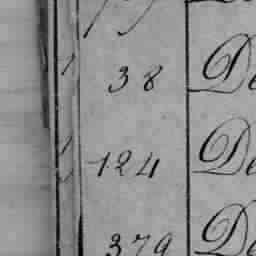 38 De
124 De
379 De